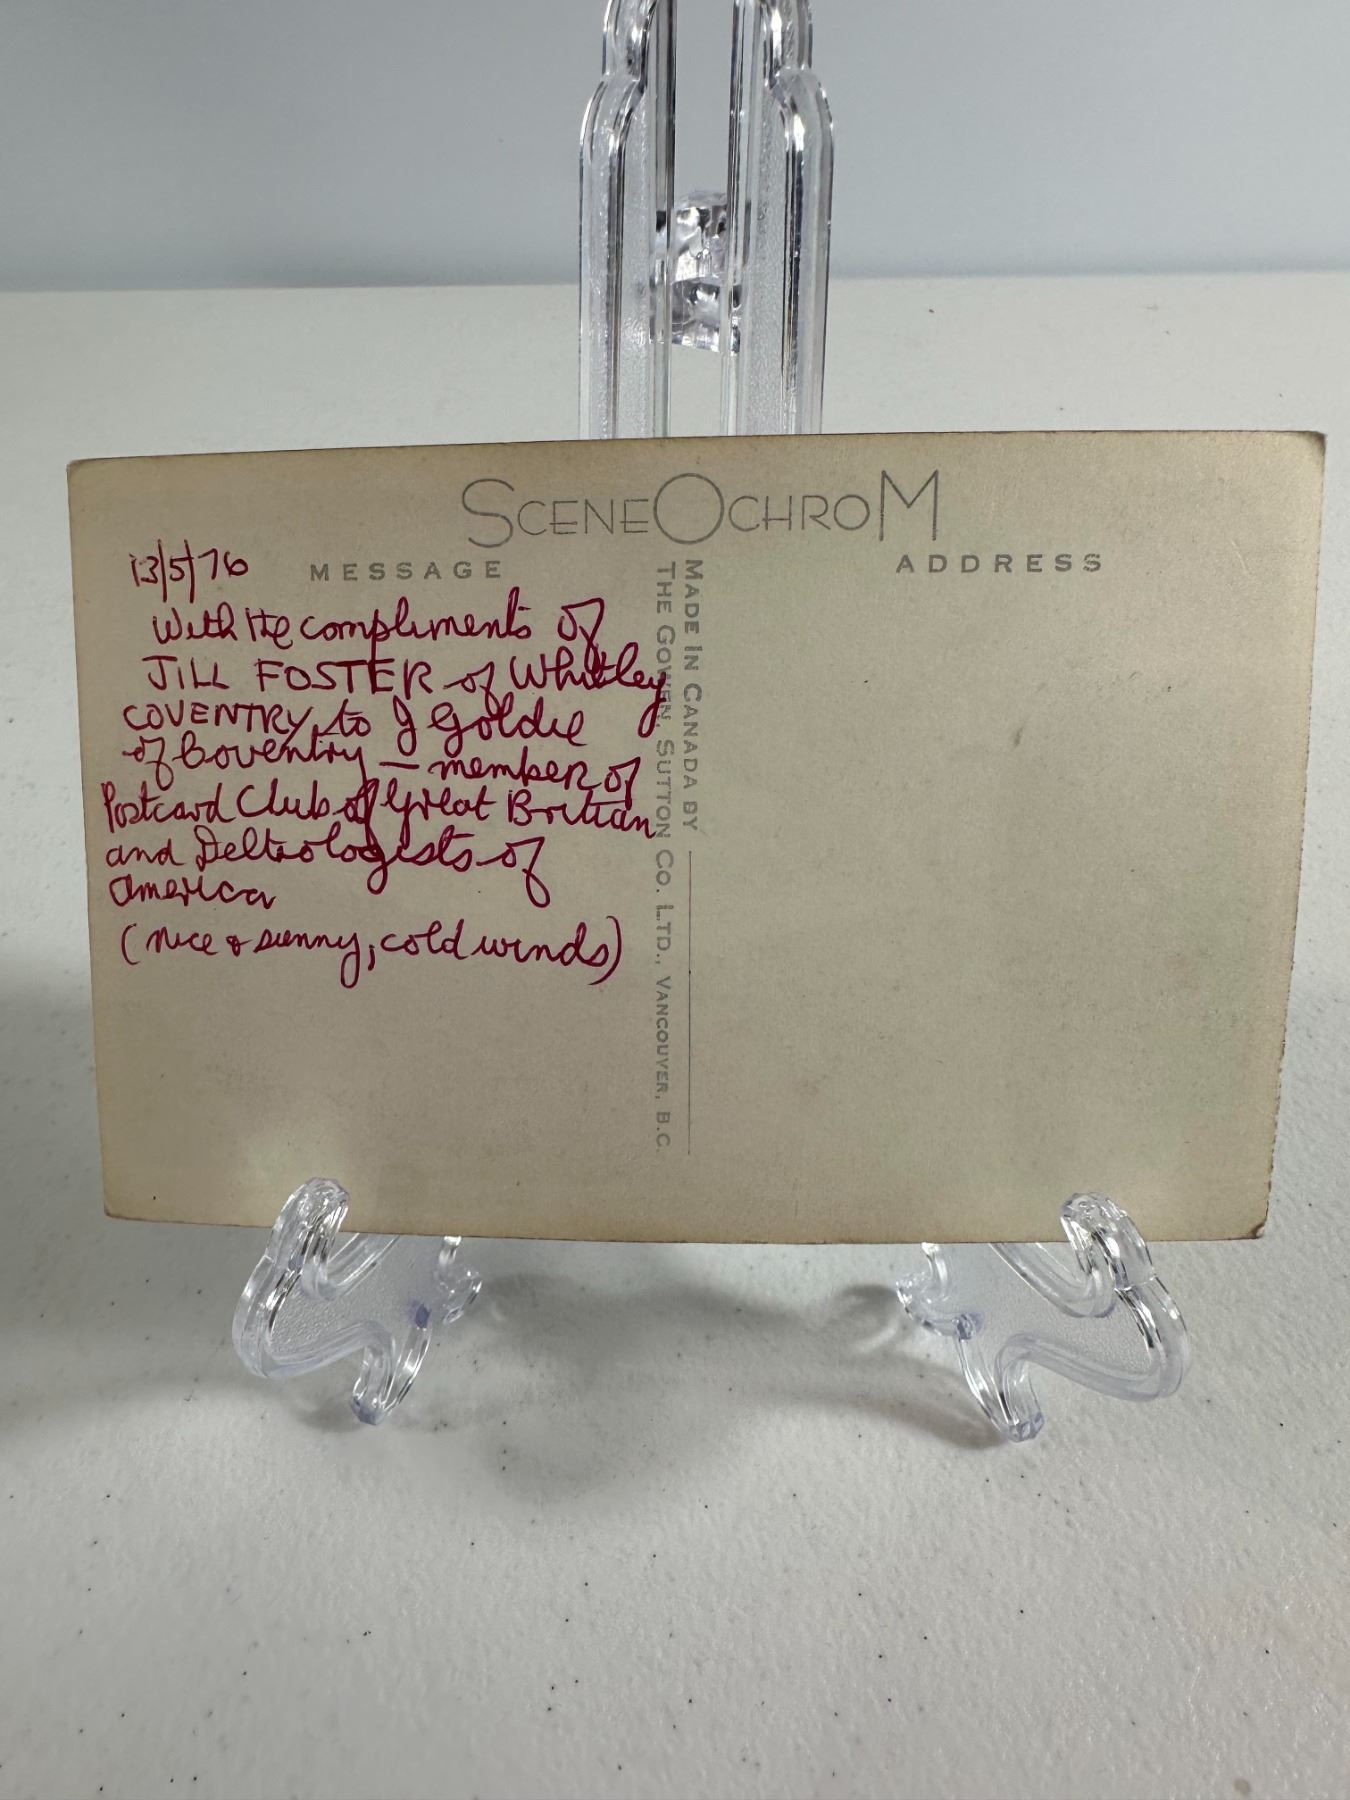 SCENEOCHROM
MESSAGE
ADDRESS
13/5/76
With the compliments of
JILL FOSTER of Whitley
COVENTRY, to J Goldie
of Coventry — member of
Postcard Club of Great Britian
and Deltiologists of
America
(nice & sunny, cold winds)
MADE IN CANADA BY
THE GOWEN, SUTTON CO. LTD., VANCOUVER, B.C.